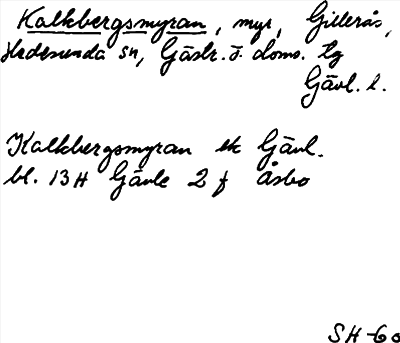 Kalkbergsmyran, myr, Gillerås,
Hedesunda sn, Gästr. ö. doms. tg
Gävl. l.
Kalkbergsmyran ek Gävl.
bl. 13H Gävle 2 f Åsbo
SH-60